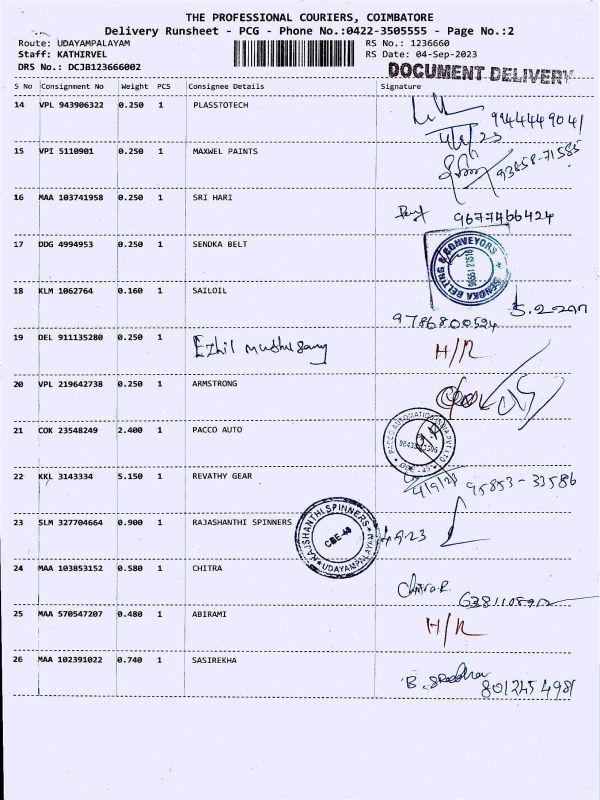 THE PROFESSIONAL COURIERS, COIMBATORE
Delivery Runsheet - PCG - Phone No.:0422-3505555 - Page No.:2
Route: UDAYAMPALAYAM RS No.: 1236660
Staff: KATHIRVEL RS Date: 04-Sep-2023
DRS No.: DCJB123666002 DOCUMENT DELIVERY
S No Consignment No Weight PCS Consignee Details Signature
14 VPL 943906322 0.250 1 PLASSTOTECH
9944449041
4/9/23
15 VPI 5110901 0.250 1 MAXWEL PAINTS
93858-71585
16 MAA 103741958 0.250 1 SRI HARI
9677466424
17 DDG 4994953 0.250 1 SENDKA BELT
SENDKA BELTING & CONVEYORS
18 KLM 1062764 0.160 1 SAILOIL
9786800524
19 DEL 911135280 0.250 1 Ezhil
H/R
20 VPL 219642738 0.250 1 ARMSTRONG
21 COK 23548249 2.400 1 PACCO AUTO
22 KKL 3143334 5.150 1 REVATHY GEAR
4/9/23 95853-33586
23 SLM 327704664 0.900 1 RAJASHANTHI SPINNERS
RAJSHANTHI SPINNERS
CBE-49
UDAYAMPALAYAM
24 MAA 103853152 0.580 1 CHITRA
Chitra.R
25 MAA 570547207 0.480 1 ABIRAMI
H/R
26 MAA 102391022 0.740 1 SASIREKHA
8012454981